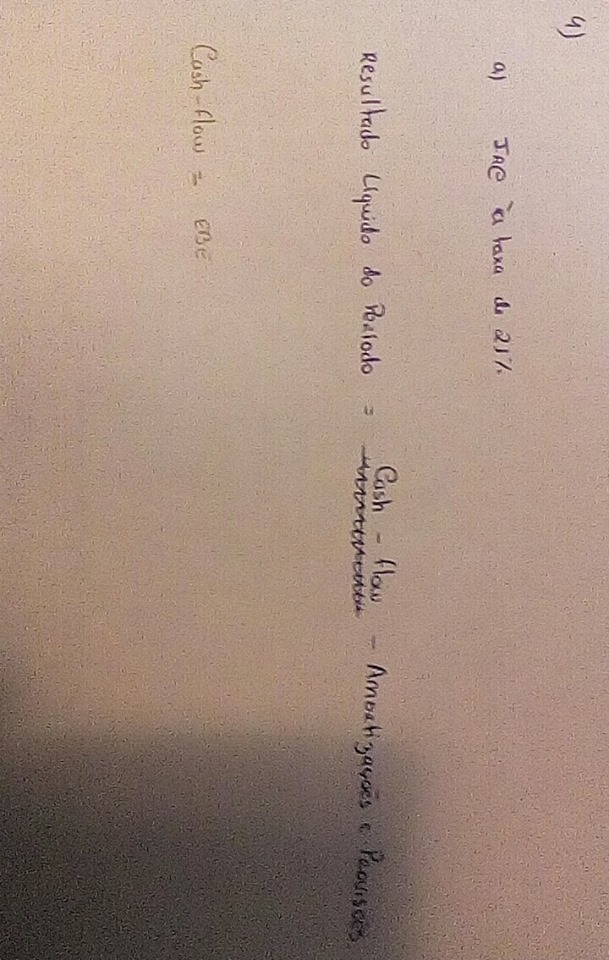 4)
a) IRC à taxa de 21%
Resultado Líquido do Período = Cash-flow - Amortizações e Provisões
Cash-flow = EBE